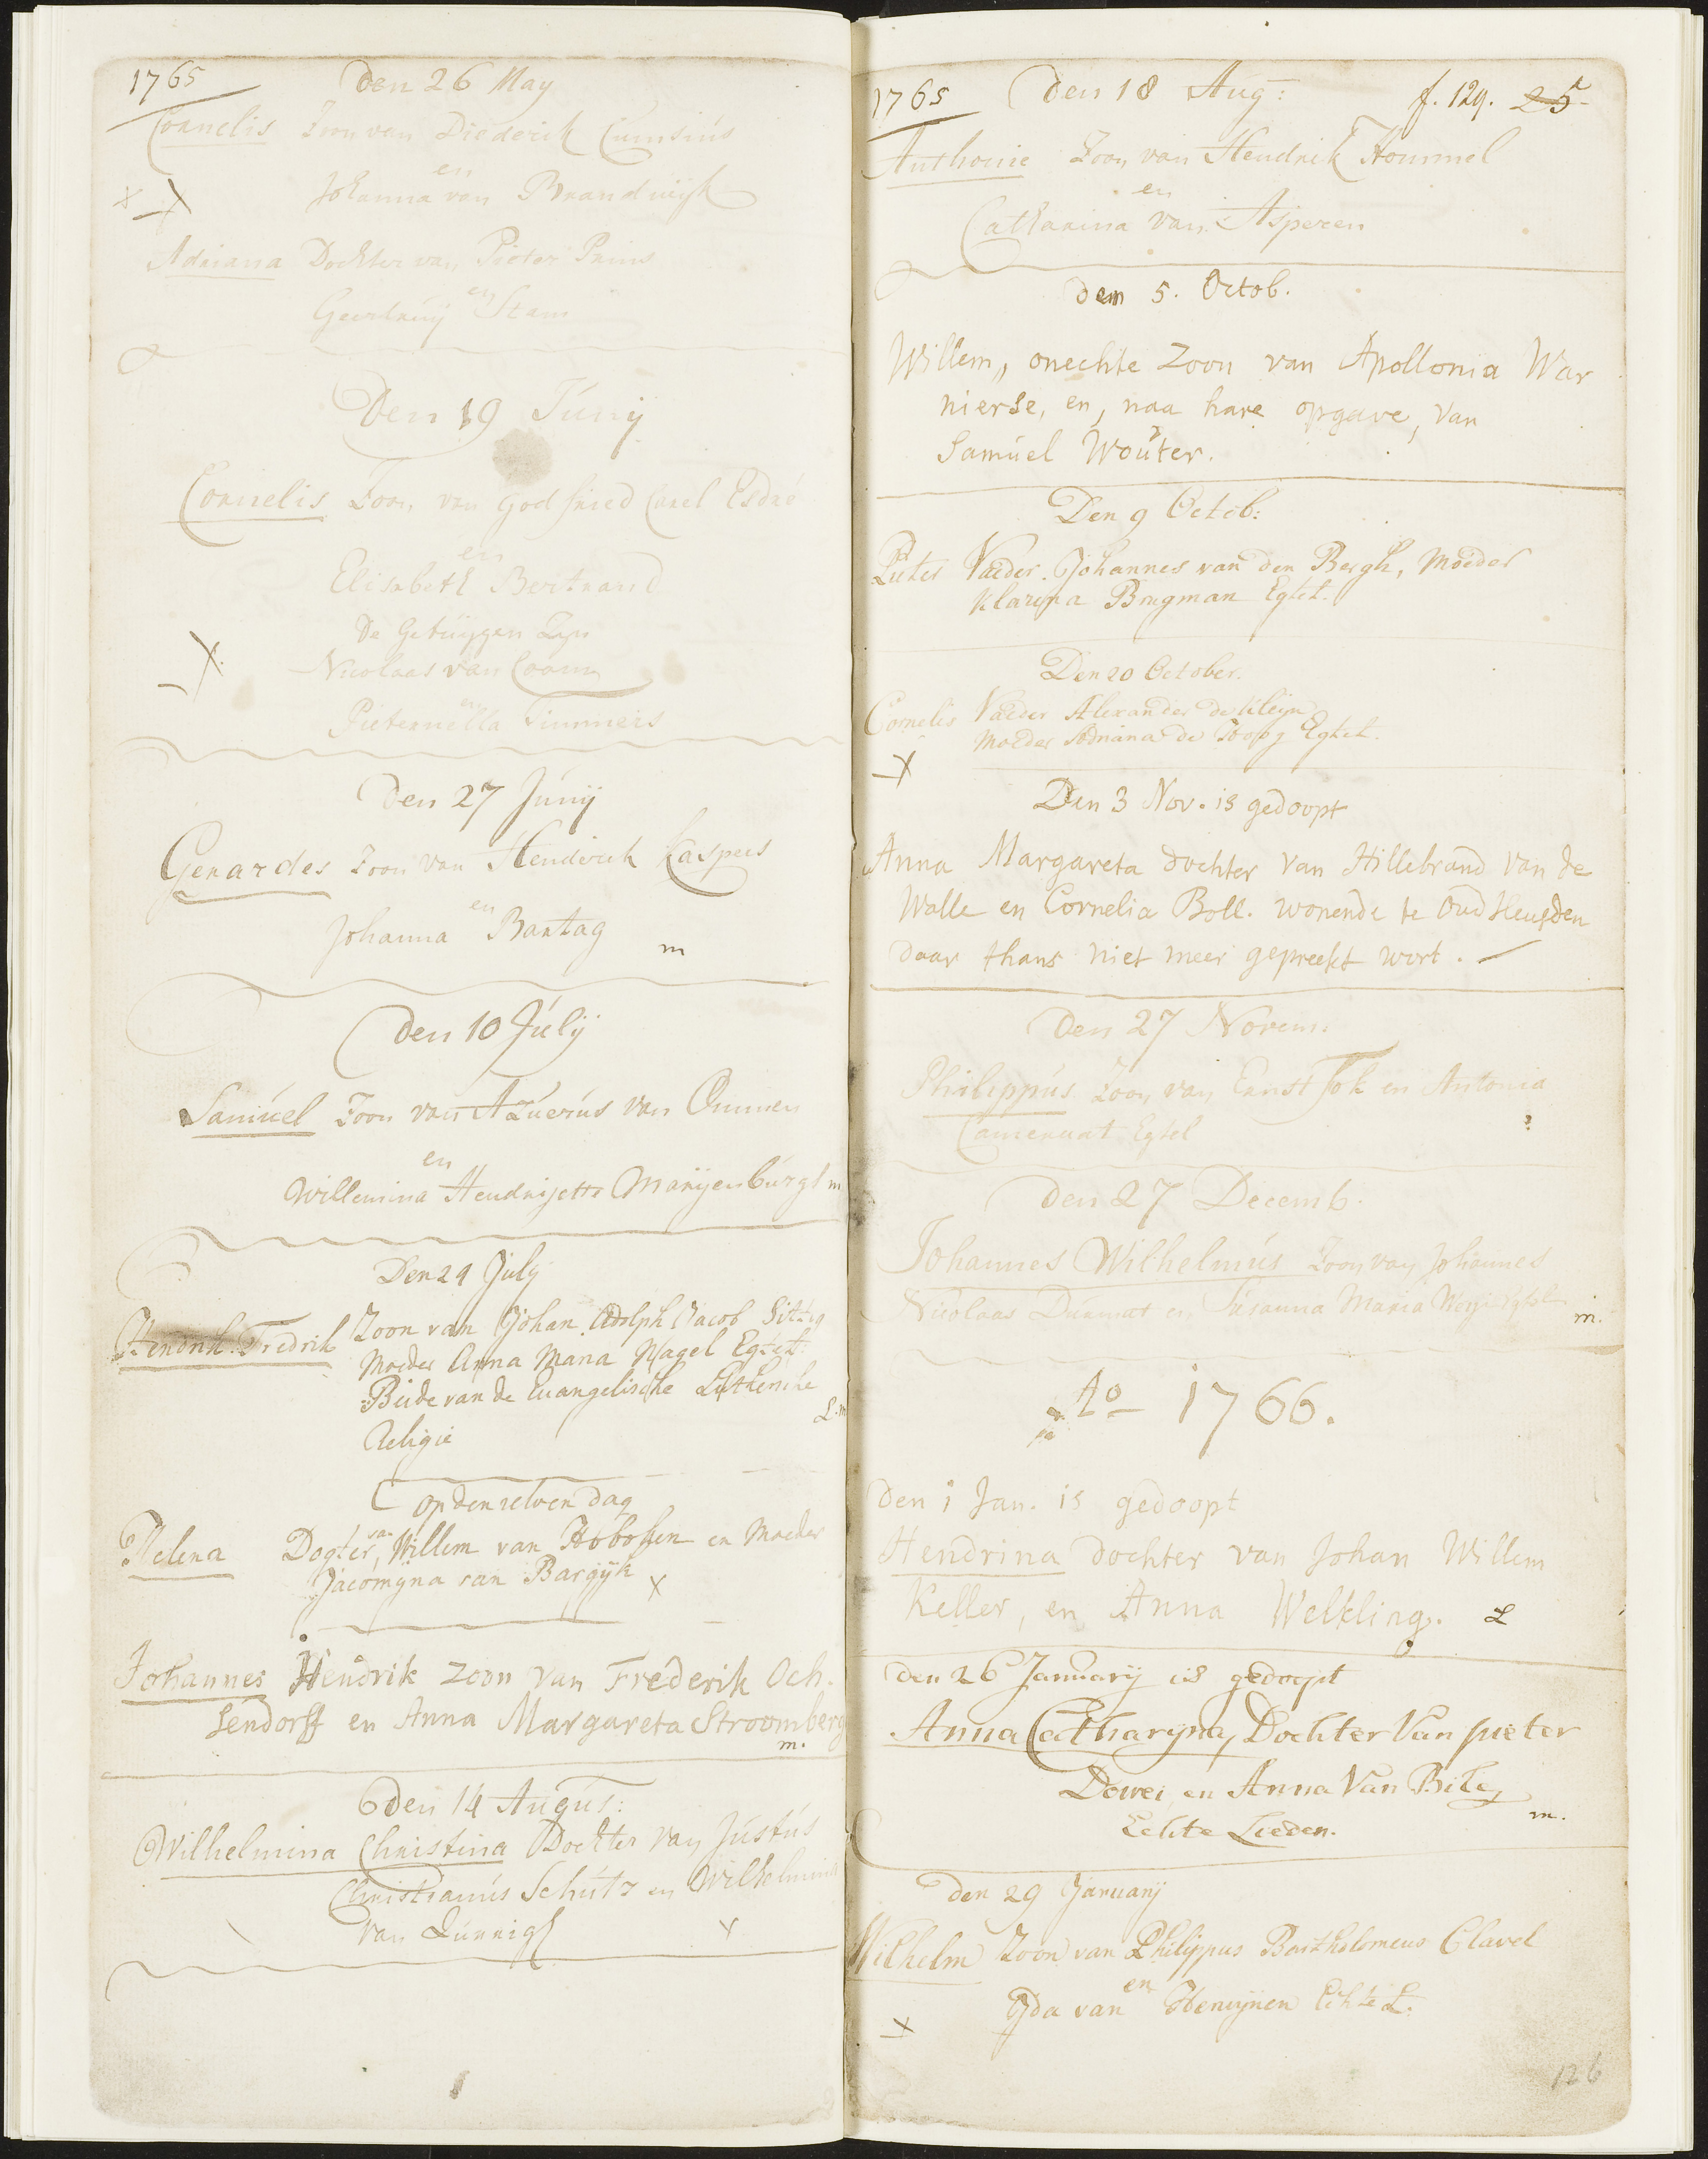 1765
den 26 May
Cornelis Zoon van Diederik Cumsiús
en
Johanna van Brandwijk
Adriana Dochter van Pieter Prins
en
Geertruij Stam
Den 19 Júnij
Cornelis Zoon van Godfried Carel Esdré
en
Elisabeth Bertrand
De Getuijgen Zyn
Nicolaas van Coam
en
Pieternella Timmers
Den 27 Júnij
Gerardes Zoon van Henderik Caspers
en
Johanna Bartag m
Den 10 Júlij
Samúel Zoon van Azuerús van Ommen
en
Willemina Hendrijette Marijenbúrgh m
Den 24 July
Hendrik Fredrik Zoon van Johan Adolph Jacob Sittig
Moeder Anna Maria Nagel Egtel.
Beide van de Euangelische Luthersche
L. m
Religie
op denzelven dag
Helena Dogter van Willem van Hoboken en Moeder
Jacomyna van Bargijk x
Johannes Hendrik Zoon van Frederik Och-
sendorff en Anna Margareta Stroomberg
m.
den 14 Augús:
Wilhelmina Christina Dochter van Jústús
Christianús Schútz en Wilhelmina
van Qúnnigh x
1765 Den 18 Aug: f. 129. 25
Anthonie Zoon van Hendrik Hommel
en
Catharina van Asperen
den 5. Octob.
Willem, onechte Zoon van Apollonia War
nierse, en, naa hare opgave, van
Samúel Woúter.
Den 9 Octob:
Vaeder Johannes van den Bergh, Moeder
Klarina Brugman Egtel.
Den 20 October.
Cornelis Vaeder Alexander de Kleijn
Moeder Adriana de Egtel.
x
Den 3 Nov. is gedoopt
Anna Margareta dochter van Hillebrand van de
Walle en Cornelia Boll. wonende te Oud Heusden
daar thans niet meer gepreekt wort.
Den 27 Novem:
Philippús Zoon van Ernst Fok en Antonia
Camenuat Egtel
den 27 Decemb.
Johannes Wilhelmús Zoon van Johannes
Nicolaas Durmat en Súsanna Maria Egtel m.
Ao 1766.
den 1 Jan. is gedoopt
Hendrina dochter van Johan Willem
Keller, en Anna Welkling. L
den 26 Januarij is gedoopt
Anna Catharyna, Dochter Van pieter
Dowei en Anna Van
Echte Lieden. m.
den 29 Januarij
Wilhelm Zoon van Philippus Bartholomeus Clavel
en
Yda van Henwijnen Echte L.
x
126